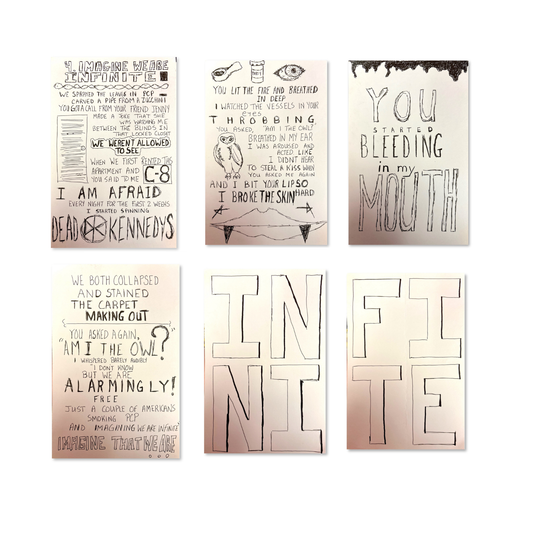 4. IMAGINE WE ARE
INFINITE
WE SPARKED THE LEAVES IN PCP
CARVED A PIPE FROM A ZUCCHINI
YOU GOT A CALL FROM YOUR FRIEND JENNY
MADE A JOKE THAT SHE
WAS WATCHING ME
BETWEEN THE BLINDS IN
THAT LOCKED CLOSET
WE WEREN'T ALLOWED
TO SEE
WHEN WE FIRST RENTED THIS
APARTMENT AND
YOU SAID TO ME
C-8
I AM AFRAID
EVERY NIGHT FOR THE FIRST 2 WEEKS
I STARTED SPINNING
DEAD KENNEDYS
YOU LIT THE FIRE AND BREATHED
IN DEEP
I WATCHED THE VESSELS IN YOUR
eyes
THROBBING
YOU ASKED, "AM I THE OWL?"
BREATHED IN MY EAR
I WAS AROUSED AND
ACTED LIKE
I DIDN'T HEAR
TO STEAL A KISS WHEN
YOU ASKED ME AGAIN
AND I BIT YOUR LIP SO
HARD
I BROKE THE SKIN
YOU
STARTED
BLEEDING
in my
MOUTH
WE BOTH COLLAPSED
AND STAINED
THE CARPET
MAKING OUT
YOU ASKED AGAIN,
"AM I THE OWL?"
I WHISPERED BARELY AUDIBLY
"I DON'T KNOW
BUT WE ARE
ALARMINGLY!
FREE
JUST A COUPLE OF AMERICANS
SMOKING PCP
AND IMAGINING WE ARE INFINITE"
IMAGINE THAT WE ARE
...
IN
NI
FI
TE